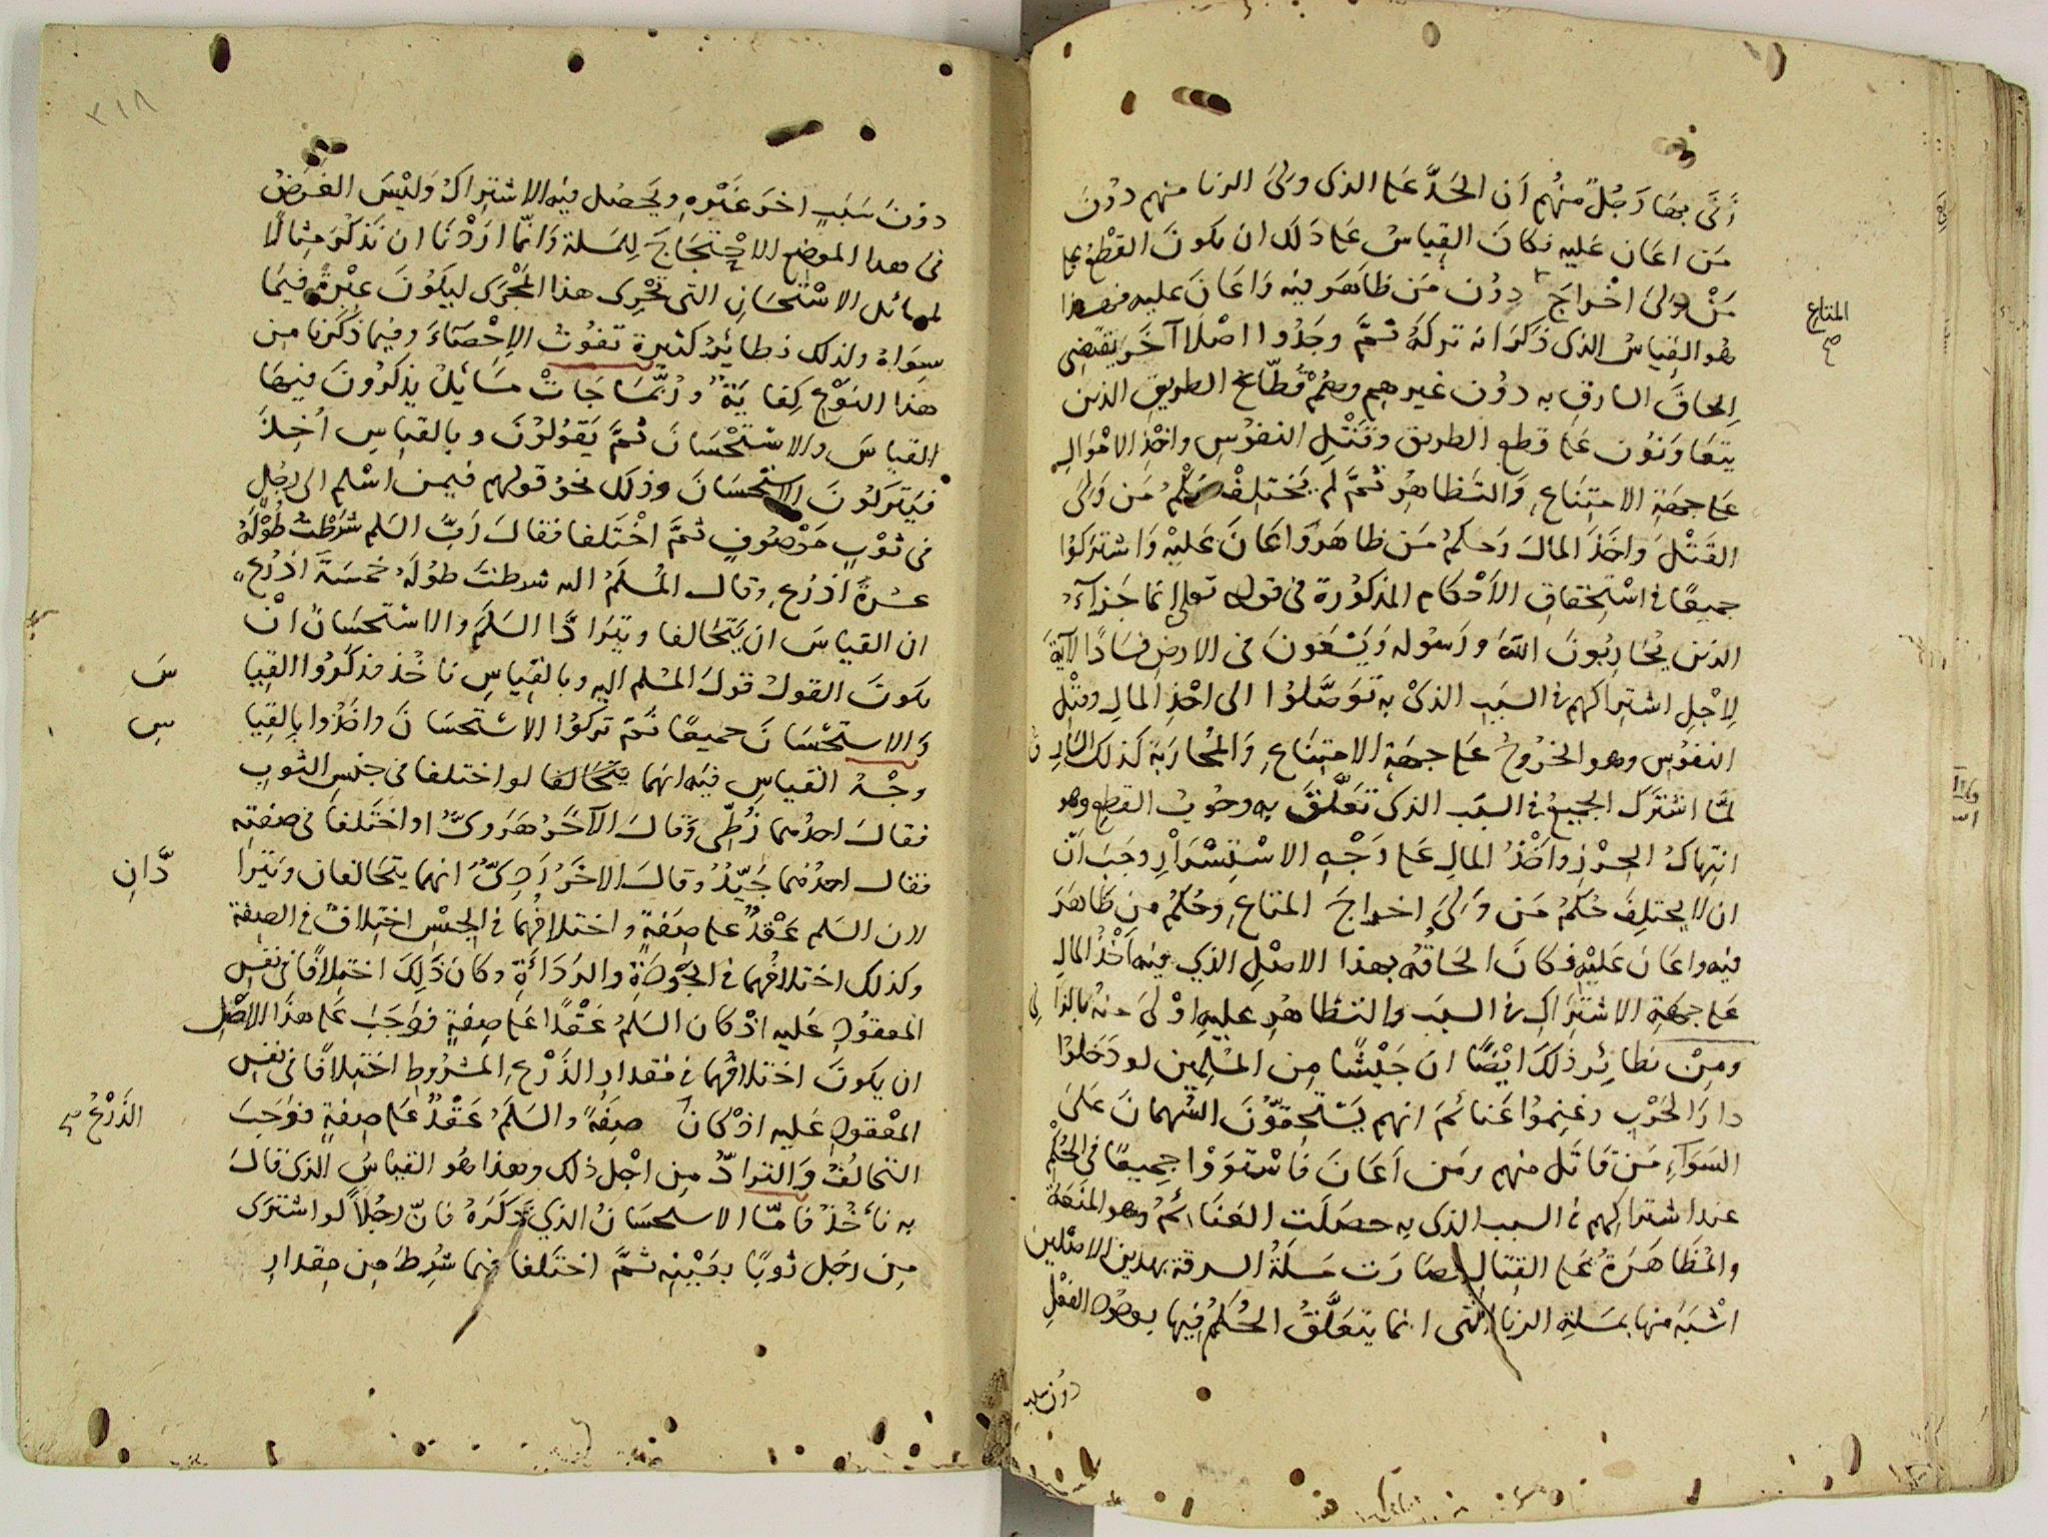 أتَى بهَا رَجُلٌ منهُم اَن الحَدَّ عَلى الذى ولىَ الزنا منهم دوُنَ
مَن اعَان عَليه فكانَ القِياسُ عَلى ذَلكَ ان يكونَ القَطْعُ على
مَنْ وَلىَ اخْراجَ دوُن مَن ظاهَر فيه وَاعَانَ عليه فهذا
المتاع صح
هُو القِياسُ الذى ذكرَ انه تركهُ ثمَّ وجَدُوا اصْلا آخَر يقتضِى
اِلحاقَ السارق به دوُن غيرهِم وهُمْ قُطّاع الطريق الذين
يتعَاوَنوُن عَلى قطع الطريق وقَتْلِ النفوُسِ واخْذِ الامْوَالِ
عَلى جهَة الامتِنَاعِ وَالتَظاهُر ثمَّ لم يَختلِفْ حُكمُ مَن وَلىَ
القَتْلَ واخَذَ المالَ وَحكمُ مَن ظاهَرَ وَاعَانَ عَليْهِ وَاشتركوُا
جميعًا فى اسْتِحْقاقِ الأَحْكام المذكوُرة فى قوله تعلى انما جَزآءُ
الذين يُحَارِبُونَ اللهَ ورَسُوله وَيَسْعَونَ فى الارضِ فسَادًا الآيةَ
لِاجْلِ اشتراكهم فى السَبَبِ الذىْ به تَوَصَّلوُا الى اخْذِ المالِ وقتْلِ
النفوُسِ وهو الخروُجُ عَلى جهَةِ الامتِنَاعِ وَالمُحَارَبَة كذلك السَارِقُ
لمَّا اشْتَرَكَ الجميعُ فى السَبَب الذى تَعَلَّقَ به وجُوبُ القطع وهو
انتِهاكُ الحِرْزِ وَاَخْذُ المالِ عَلى وَجْهِ الاسْتِسْرَارِ وجَبَ اَنّ
ان لا يختلِفَ حُكمُ مَن وَلِىَ اخراجَ المتاعِ وحُكمُ مَن ظاهَرَ
فيه واعَانَ عَليْهِ فكانَ الحَاقهُ بهذا الاصْلِ الذي فيه اَخْذُ المالِ
عَلى جهَةِ الاشتِرَاكِ فى السبَب والتظاهُرِ عليهِ اوْلىَ منهُ بالزانِى
ومِنْ نظائِر ذلكَ ايْضًا ان جَيْشًا مِن المسْلِمين لو دَخَلوُا
دارَ الحَرْبِ وغنِموُا غنائمَ انهم يَسْتَحِقّوُنَ السُهمانَ عَلىَ
السَوَآءِ مَن قَاتَل منهم ومَن اَعَانَ فَاسْتَوَوْا جميعًا فى الحُكْمِ
عنداشتراكهم فى السبب الذى به حصلَت الغنَائمُ وهو المنَعَةُ
والمُظَاهَرَةُ عَلى القِتالِ فصَارَت مَسلَةُ السرقة بهذين الاصْلَين
اشْبَهَ منها بمسَلةِ الزِنا التى انما يتعَلَّقُ الحُكمُ فيها بوجُودِ الفعْلِ
دُون
٣١٨
دوُنَ سَبَبٍ اخرَ غَيْرِهِ ويَحصُل فيه الاشتِراكُ وَليْسَ الغَرَضُ
فى هذا الموضعِ الاحْتِجَاجَ لِلمسَلة وَانمّا ارَدْنَا ان نَذكُرَ مِثالاً
لمسائل الاسْتحْسَانِ التى تَجْرِى هذا المَجْرَى ليَكوُنَ عِبْرَةً فيمَا
سِوَاهُ ولذلك نظائرُ كثيرة تفوُتُ الإحْصَاءَ وفيما ذَكَرنا مِن
هَذا النَوْعِ كِفَايَةٌ ورُبَّمَا جَاتْ مَسَائِلُ يذكرُوُنَ فيهَا
القياسَ والاسْتحْسَانَ ثُمَّ يَقوُلوُنَ وبالقياسِ اُخِذَ
فَيَترَكُونَ الاستحسَانَ وذلكَ نحوُ قولهم فيمن اسْلم الى رجُلٍ
فى ثوْبٍ مَوْصُوفٍ ثمَّ اخْتَلفا فقالَ رَبُّ السَلم شَرَطْتُ طُوْلَهُ
عشرةَ اَذرُعٍ وقال المُسلَمُ اليه شرطتَ طوُلَهُ خمسَةَ اَذرُعٍ
ان القياسَ ان يَتحَالفا ويتَرَادَّا السَلَمَ والاستحسَانُ انْ
يكونَ القولُ قولَ المسْلم اليه وبالقِياسِ ناخُذ فذكَرُوا القِيا سَ
وَالاستحْسَانَ جميعًا ثمّ تركوُا الاستحسَانَ واخَذُوا بالقِيا سِ
وجْهُ القياسِ فيه انهما يتَحَالفا لو اختلفا فى جنسِ الثوبِ
فقالَ احدُهما زُطّىٌ وَقالَ الآخَرُ هَرَوىٌّ او اختَلفا فى صفتِه
فقال احدُهما جَيّدٌ وقالَ الاخَرُ رَدِىٌّ انهما يتحَالفان ويَترا دَّانِ
لان السَلم عَقْدٌ على صِفةٍ واختلافُهما فى الجِنسِ اختِلافٌ فى الصِفةِ
وكذلك اختلافُهما فى الجَوْدَةِ والرَدَاءَةِ وكانَ ذَلِكَ اختِلافًا فى نفسِ
المعقوُدِ عَليه اذْ كان السَلمُ عَقْدًا عَلى صِفةٍ فوَجَبَ عَلى هذَا الاصْلِ
ان يكوُنَ اختلافُهما فى مقدارِ الذَرْعِ المشرُوطِ اختِلافًا فى نفسِ
المعْقوُدِ عَليه اذْ كانَ صِفَةً والسَلَمُ عَقْدٌ عَلى صِفةٍ فوَجَبَ
الذَرْعُ صح
التحَالُفُ وَالترادُّ مِن اجْل ذلك وهذا هُو القياسُ الذى قالَ
به نأخُذُ فامَّا الاستحسَانُ الذي ذكَرَهُ فانّ رجُلاً لو اشترَى
مِن رجُل ثوبًا بعَيْنِه ثمَّ اختَلفا فيما شُرِطَ مِن مِقدارِ